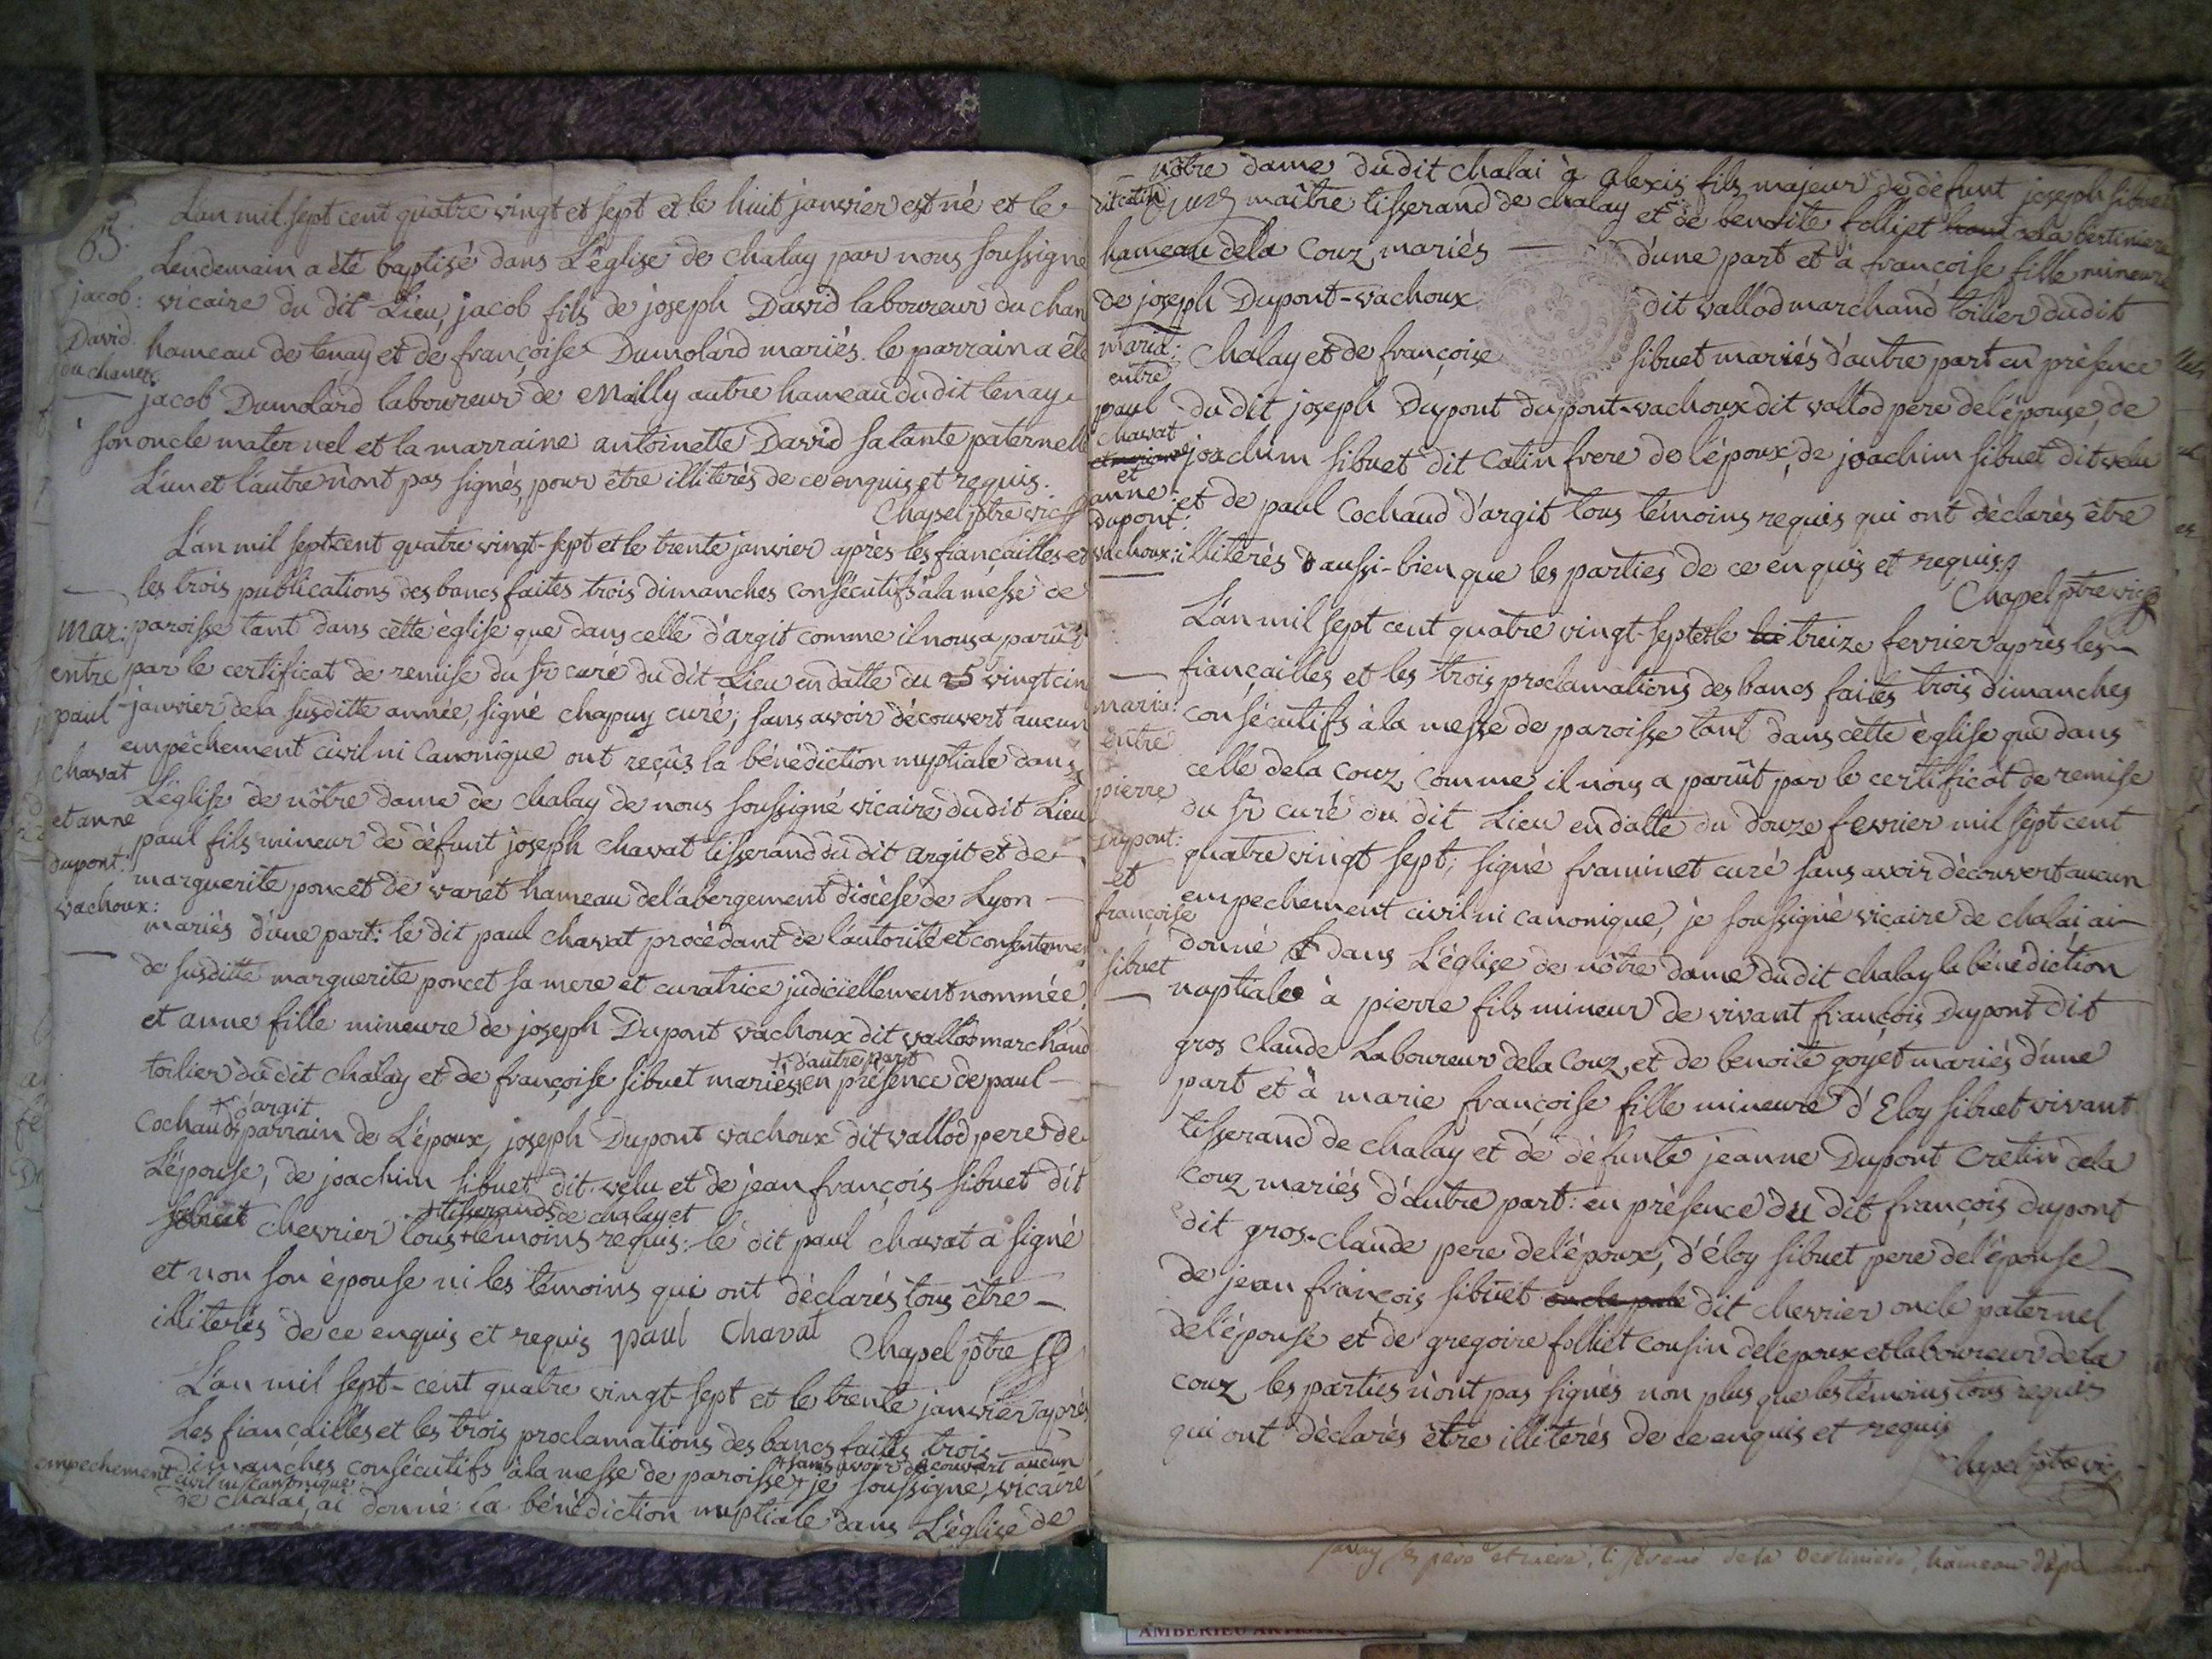 B:
jacob:
David
du chanet
L'an mil sept cent quatre vingt et sept et le huit janvier est né et le
Lendemain a été baptisé dans L'église de Chalay par nous soussigné
vicaire du dit Lieu, jacob fils de joseph David laboureur du chan
hameau de tenay et de françoise Dumolard mariés. le parrain a été
jacob Dumolard laboureur de Mailly autre hameau du dit tenay
son oncle maternel et la marraine antoinette David sa tante paternelle
L'un et l'autre n'ont pas signés, pour être illiterés de ce enquis et requis.
Chapel ptre vic
mar:
entre
paul
chavat
et anne
dupont:
vachoux:
L'an mil sept cent quatre vingt-sept et le trente janvier après les fiançailles et
les trois publications des bancs faites trois dimanches consécutifs à la messe de
paroisse tant dans cette église que dans celle d'argit comme il nous a parût
par le certificat de remise du sr curé du dit Lieu en datte du 25 vingt cin
janvier de la susditte année, signé chapuy curé; sans avoir découvert aucun
empêchement civil ni Canonique ont reçûs la bénédiction nuptiale dans
L'église de nôtre dame de chalay de nous soussigné vicaire du dit Lieu
paul fils mineur de défunt joseph chavat tisserand du dit argit et de
marguerite poncet de varèt hameau de l'abergement diocèse de Lyon
mariés d'une part: le dit paul chavat procédant de l'autorité et consenteme
de susditte marguerite poncet sa mere et curatrice judiciellement nommée
et anne fille mineure de joseph Dupont vachoux dit vallod marchand
toilier du dit chalay et de françoise sibuet mariés + en présence de paul
+ d'autre part
Cochaud + parrain de L'époux, joseph Dupont vachoux dit vallod pere de
+ d'argit
L'épouse, de joachim sibuet dit velu et de jean françois sibuet dit
sibuet chevrier tous + témoins requis: le dit paul chavat a signé
+ tisserands de chalay et
et non son épouse ni les témoins qui ont déclarés tous être
illiterés de ce enquis et requis paul Chavat Chapel ptre
L'an mil sept-cent quatre vingt-sept et le trente janvier après
Les fiançailles et les trois proclamations des bancs faites trois
dimanches consécutifs à la messe de paroisse + je soussigné, vicaire
+ sans avoir découvert aucun
empechement civil ni canonique.
de chalai, ai donné la bénédiction nuptiale dans L'église de
nôtre dame du dit chalai à alexis fils majeur de défunt joseph sibuet
dit catin maître tisserand de chalay et de benoite folliet de la bertiniere
hameau de la Couz mariés d'une part et à françoise fille mineure
de joseph Dupont-vachoux dit vallod marchand toilier du dit
Chalay et de françoise sibuet mariés d'autre part en présence
du dit joseph Dupont dupont-vachoux dit vallod pere de l'épouse, de
joachim sibuet dit Catin frere de l'époux, de joachim sibuet dit velu
et de paul Cochaud d'argit tous témoins requis qui ont déclarés être
illiterés aussi-bien que les parties de ce enquis et requis.
Chapel ptre vic
maria:
entre
paul
chavat
et
anne
dupont:
vachoux:
mariа:
entre
pierre
Dupont:
et
françoise
sibuet
L'an mil sept cent quatre vingt-sept et le treize fevrier après les
fiançailles et les trois proclamations des bancs faites trois dimanches
consécutifs à la messe de paroisse tant dans cette église que dans
celle de la Couz, comme il nous a parût par le certificat de remise
du sr curé du dit Lieu en datte du douze fevrier mil sept cent
quatre vingt sept; signé framinet curé sans avoir découvert aucun
empechement civil ni canonique, je soussigné vicaire de chalai, ai
donné dans L'église de nôtre dame du dit chalay la bénédiction
nuptiale à pierre fils mineur de vivant françois Dupont dit
gros Claude Laboureur de la Couz, et de benoite goyet mariés d'une
part et à marie françoise fille mineure d'Eloy sibuet vivant
tisserand de chalay et de défunte jeanne Dupont Cretin de la
Couz mariés d'autre part: en présence du dit françois dupont
dit gros-claude pere de l'époux, d'éloy sibuet pere de l'épouse
de jean françois sibuet oncle pate dit chevrier oncle paternel
de l'épouse et de gregoire folliet cousin de l'époux et laboureur de la
couz, les parties n'ont pas signés non plus que les témoins tous requis
qui ont déclarés être illiterés de ce enquis et requis
Chapel ptre vic
ses père et mère, de la Bertinière, hameau
AMBERIEU